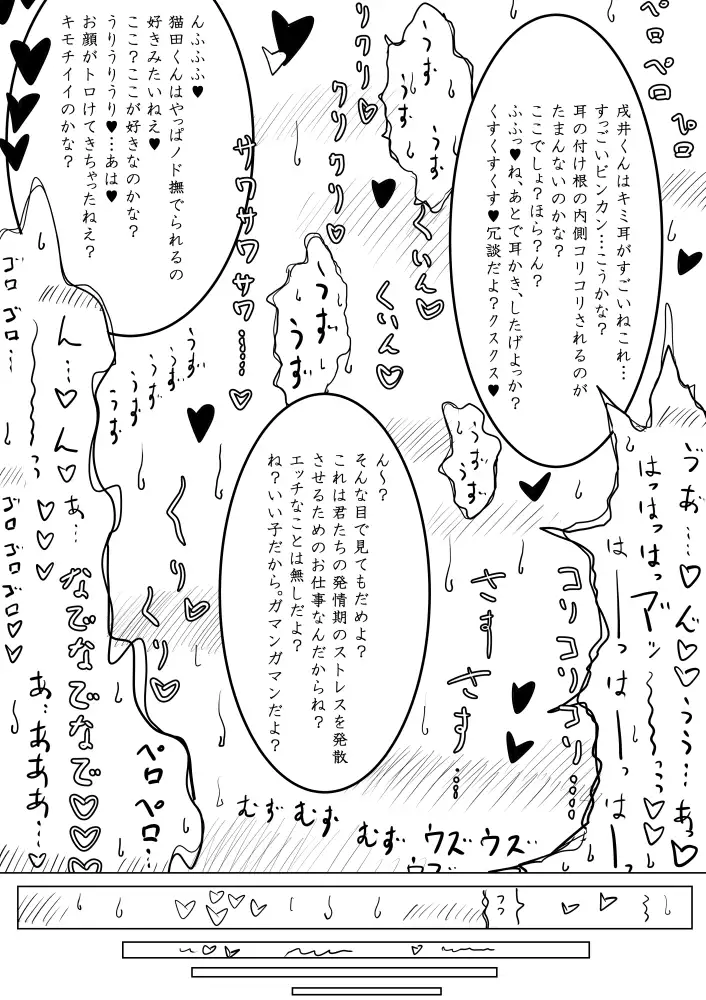 戌井くんはキミ耳がすごいねこれ…
すっごいビンカン…こうかな？
耳の付け根の内側コリコリされるのが
たまんないのかな？
ここでしょ？ほら？ん？
ふふっ♥ね、あとで耳かき、したげよっか？
くすくすくす♥冗談だよ？クスクス♥
んふふふ♥
猫田くんはやっぱノド撫でられるの
好きみたいねえ♥
ここ？ここが好きなのかな？
うりうりうり♥…あは♥
お顔がトロけてきちゃったねえ？
キモチイイのかな？
ん～？
そんな目で見てもだめよ？
これは君たちの発情期のストレスを発散
させるためのお仕事なんだからね？
エッチなことは無しだよ？
ね？いい子だから。ガマンガマンだよ？
ペロペロ
ペロ
うずうず
くいん♡
くいん♡
クリクリ♡
クリクリ♡
サワサワサワ……♡
うずうず
うずうず
うずうず
うずうず
ゴロゴロ
ん…♡ん♡
あ…
ゴロゴロゴロ♡♡
♡♡♡
なでなでなでなで♡♡♡
あ…あああ…♡
くりくり♡
ペロペロ…
さすさす…
コリコリコリ……
はっはっはっ
はーっはーっはー
うう…あっ♡
むずむず
むずむず
ウズウズ
ウズ